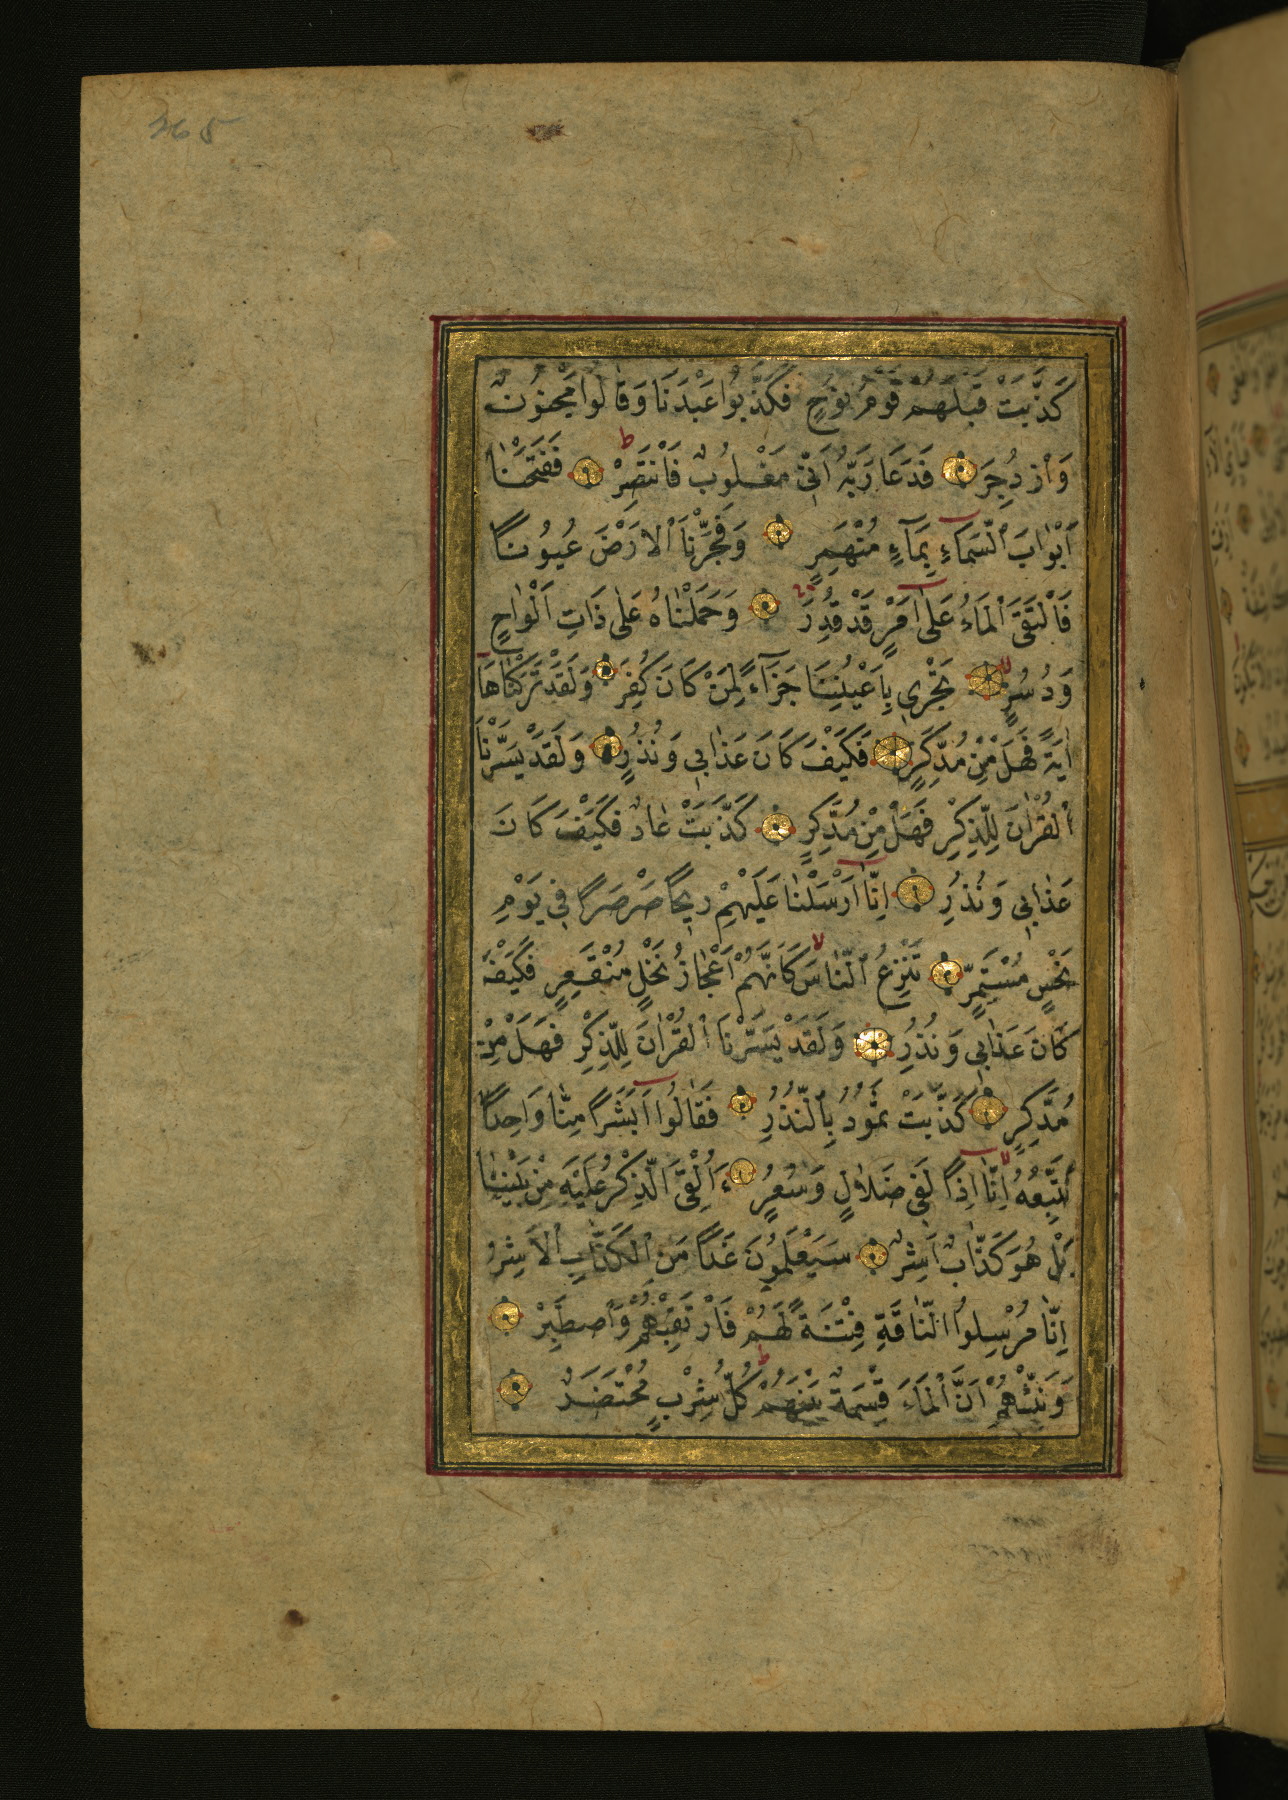 365
كَذَّبَتْ قَبْلَهُمْ قَوْمُ نُوحٍ فَكَذَّبُوا عَبْدَنَا وَقَالُوا مَجْنُونٌ
وَازْدُجِرَ فَدَعَا رَبَّهُ اَنِّي مَغْلُوبٌ فَانْتَصِرْ فَفَتَحْنَا
اَبْوَابَ السَّمَآءِ بِمَآءٍ مُنْهَمِرٍ وَفَجَّرْنَا الْاَرْضَ عُيُونًا
فَالْتَقَى الْمَاءُ عَلٰى اَمْرٍ قَدْ قُدِرَ وَحَمَلْنَاهُ عَلٰى ذَاتِ اَلْوَاحٍ
وَدُسُرٍ تَجْرِي بِاَعْيُنِنَا جَزَآءً لِمَنْ كَانَ كُفِرَ وَلَقَدْ تَرَكْنَاهَا
اٰيَةً فَهَلْ مِنْ مُدَّكِرٍ فَكَيْفَ كَانَ عَذَابِي وَنُذُرِ وَلَقَدْ يَسَّرْنَا
الْقُرْاٰنَ لِلذِّكْرِ فَهَلْ مِنْ مُدَّكِرٍ كَذَّبَتْ عَادٌ فَكَيْفَ كَانَ
عَذَابِي وَنُذُرِ اِنَّا اَرْسَلْنَا عَلَيْهِمْ رِيحًا صَرْصَرًا فِي يَوْمِ
نَحْسٍ مُسْتَمِرٍّ تَنْزِعُ النَّاسَ كَاَنَّهُمْ اَعْجَازُ نَخْلٍ مُنْقَعِرٍ فَكَيْفَ
كَانَ عَذَابِي وَنُذُرِ وَلَقَدْ يَسَّرْنَا الْقُرْاٰنَ لِلذِّكْرِ فَهَلْ مِنْ
مُدَّكِرٍ كَذَّبَتْ ثَمُودُ بِالنُّذُرِ فَقَالُوا اَبَشَرًا مِنَّا وَاحِدًا
نَتَّبِعُهُ اِنَّا اِذًا لَفِي ضَلَالٍ وَسُعُرٍ ءَاُلْقِيَ الذِّكْرُ عَلَيْهِ مِنْ بَيْنِنَا
بَلْ هُوَ كَذَّابٌ اَشِرٌ سَيَعْلَمُونَ غَدًا مَنِ الْكَذَّابُ الْاَشِرُ
اِنَّا مُرْسِلُوا النَّاقَةِ فِتْنَةً لَهُمْ فَارْتَقِبْهُمْ وَاصْطَبِرْ
وَنَبِّئْهُمْ اَنَّ الْمَاءَ قِسْمَةٌ بَيْنَهُمْ كُلُّ شِرْبٍ مُحْتَضَرٌ